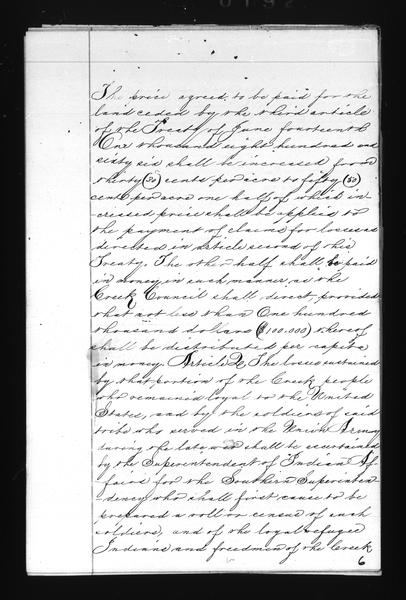 The price agreed to be paid for the
land ceded by the third article
of the Treaty of June fourteenth
One thousand eight hundred and
sixty six shall be increased from
thirty (30) cents per acre to fifty (50)
cents per acre one half of which in-
creased price shall be applied to
the payment of claims for losses as
directed in article second of this
Treaty. The other half shall be paid
in money in such manner as the
Creek Council shall direct, provided
that not less than One hundred
thousand dollars ($100.000) thereof
shall be distributed per capita
in money. Article 2. The losses sustained
by that portion of the Creek people
who remained loyal to the United
States, and by the soldiers of said
tribe who served in the Union Army
during the late war shall be ascertained
by the Superintendent of Indian Af-
fairs for the Southern Superinten-
dency who shall first cause to be
prepared a roll or census of such
soldiers, and of the loyal refugee
Indians and freedmen of the Creek
6